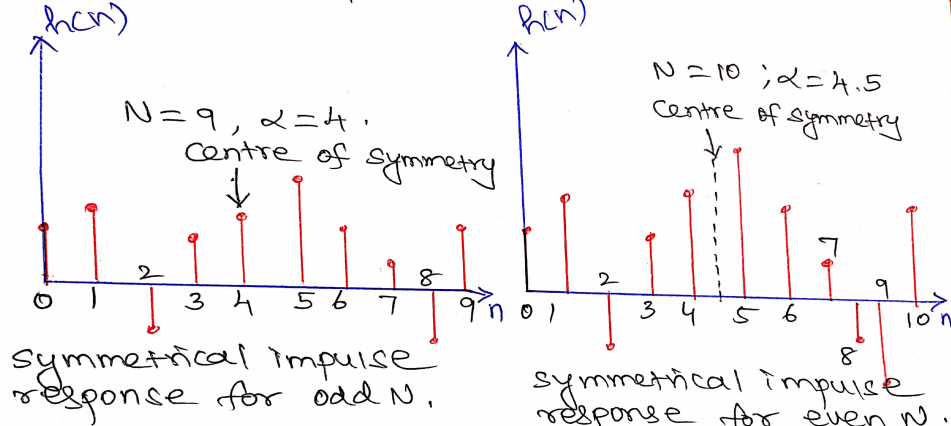 h(n)
N=9, α=4.
centre of symmetry
2
8
0 1 3 4 5 6 7 9 n
symmetrical impulse
response for odd N.
h(n)
N=10 ; α=4.5
centre of symmetry
7
2
9
0 1 3 4 5 6 10 n
8
symmetrical impulse
response for even N.